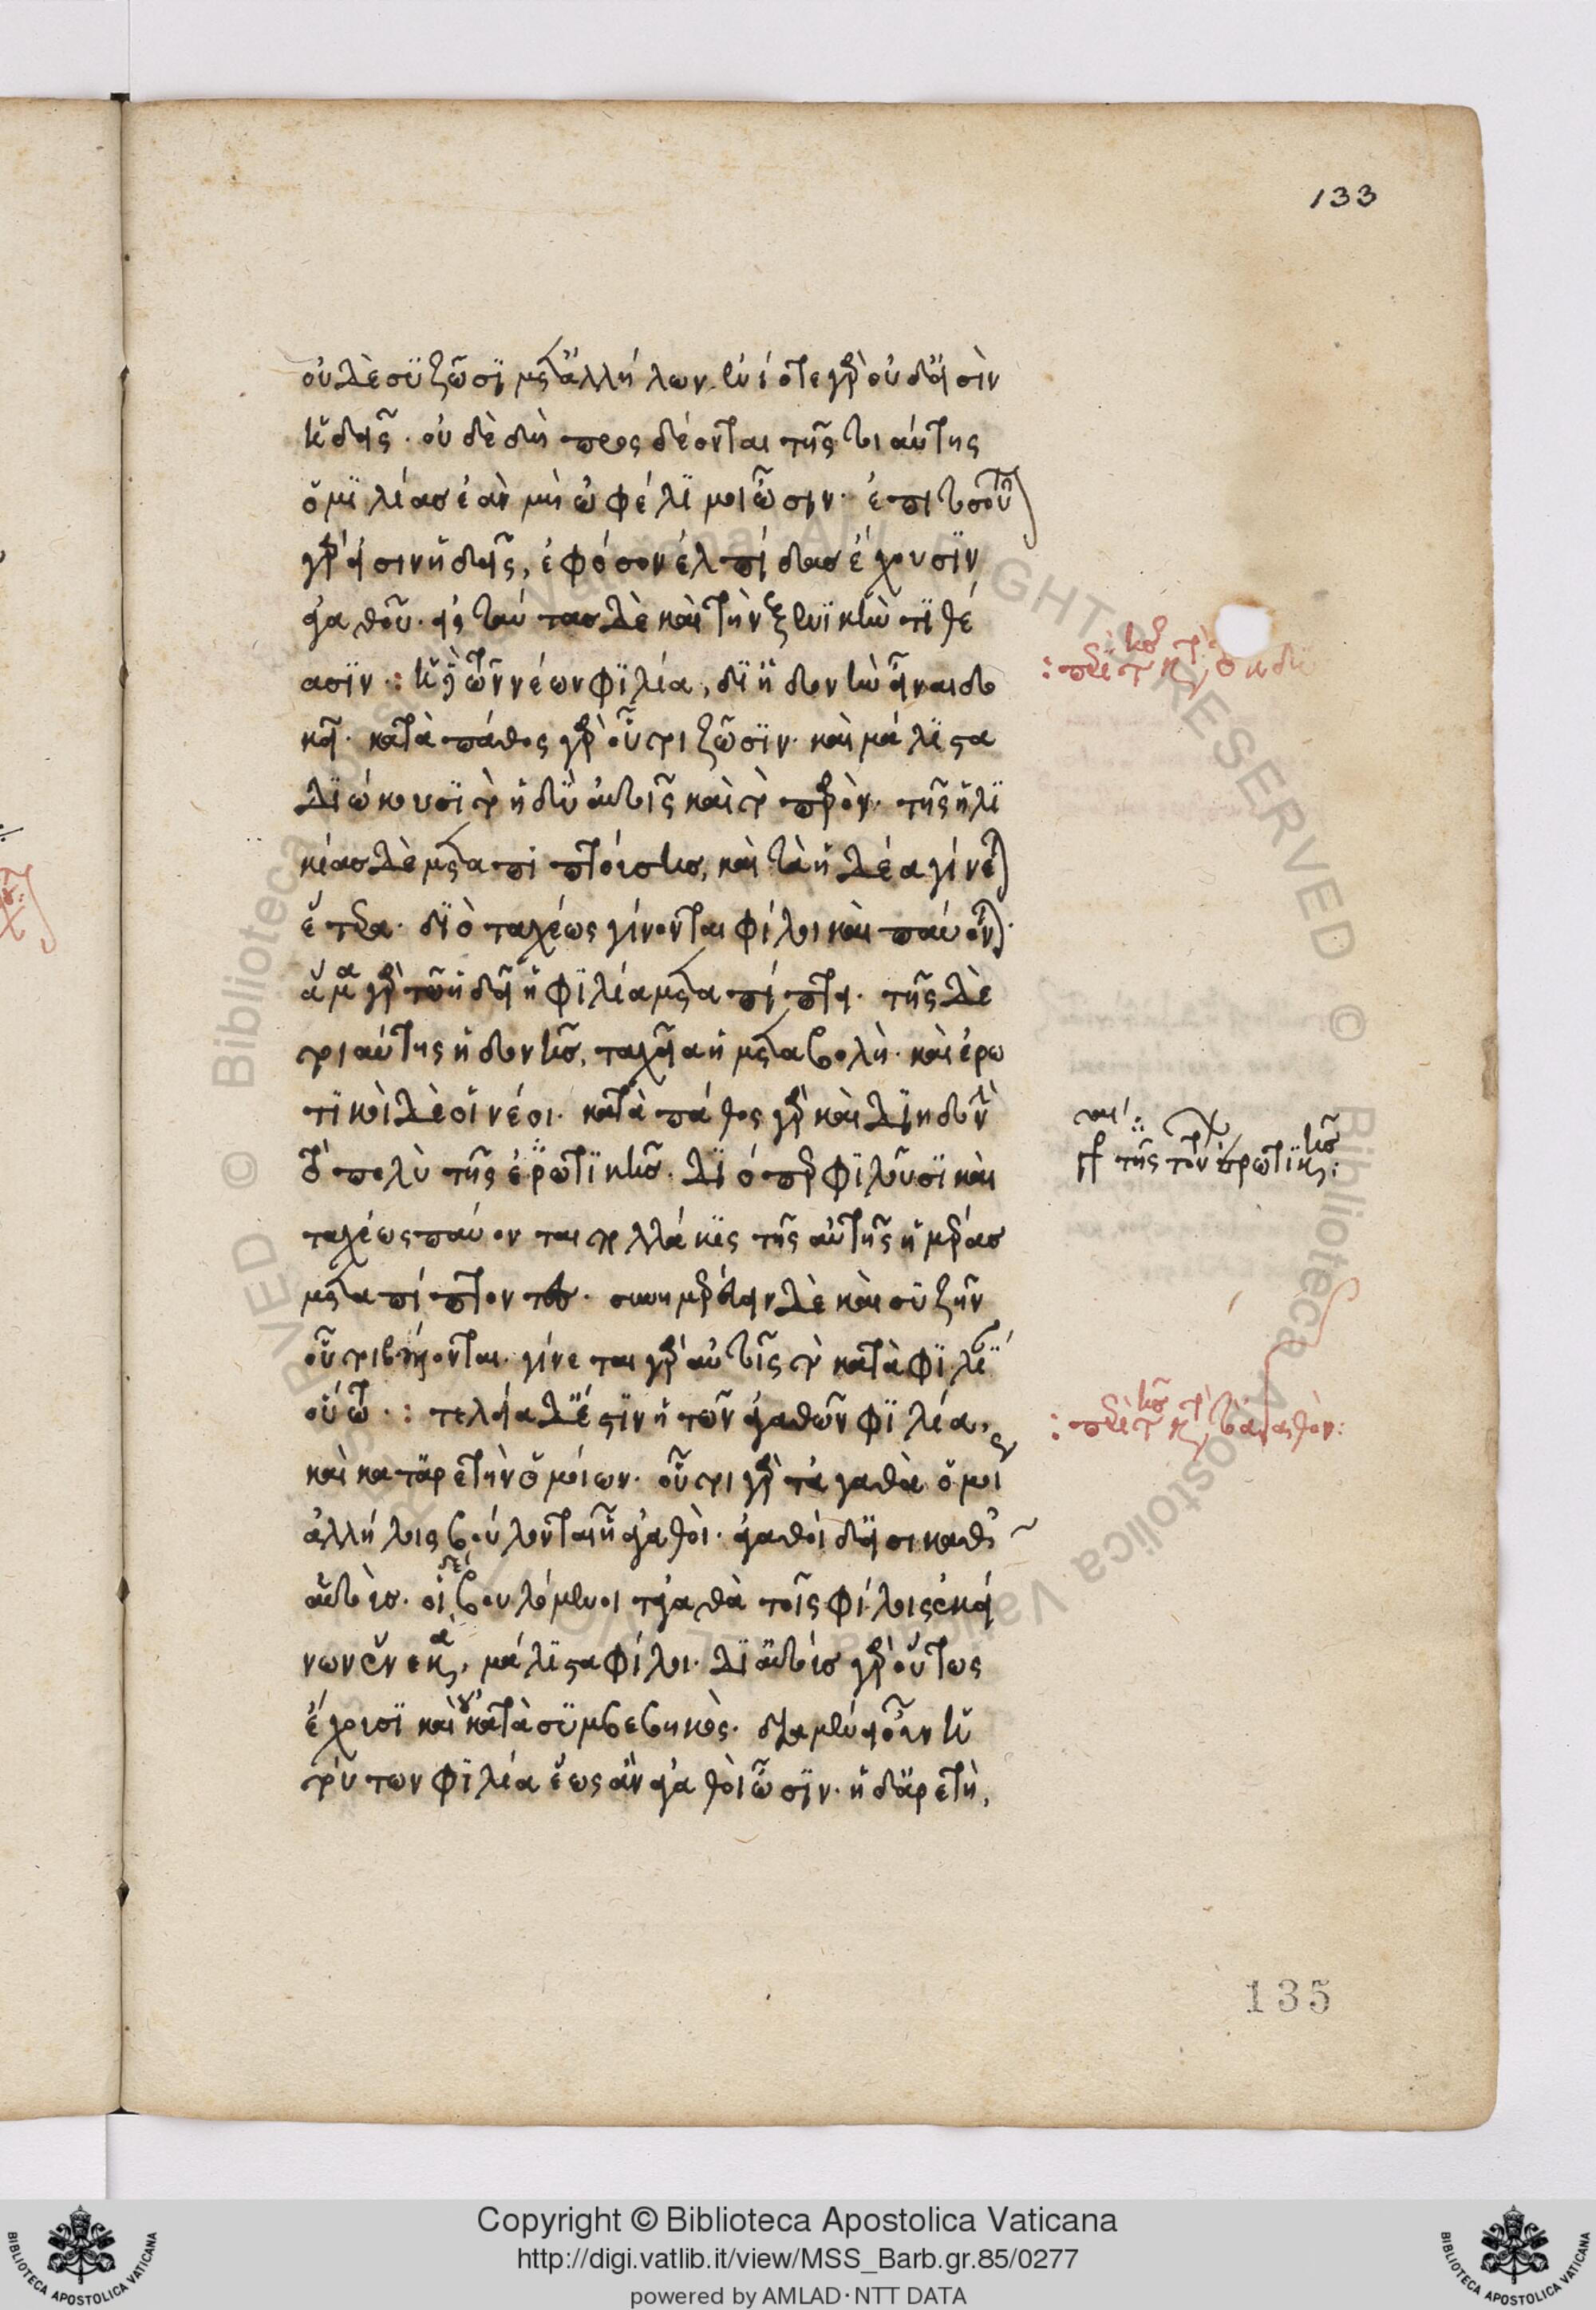 133
οὐδὲ συζῶσι μετ' ἀλλήλων. ἐνίοτε γὰρ οὐδ' εἰσὶν
ἡδεῖς. οὐδὲ δὴ προσδέονται τῆς τοιαύτης
ὁμιλίας ἐὰν μὴ ὠφέλιμοι ὦσιν. ἐπὶ τοσοῦτον
γάρ εἰσιν ἡδεῖς, ἐφ' ὅσον ἐλπίδας ἔχουσιν
ἀγαθοῦ. εἰς ταύτας δὲ καὶ τὴν ξενικὴν τιθέ
ασιν : ἡ δὲ τῶν νέων φιλία, δι' ἡδονὴν εἶναι δο
κεῖ. κατὰ πάθος γὰρ οὗτοι ζῶσιν. καὶ μάλιστα
διώκουσι τὸ ἡδὺ αὑτοῖς καὶ τὸ παρὸν. τῆς ἡλι
κίας δὲ μεταπιπτούσης, καὶ τὰ ἡδέα γίνεται
ἕτερα. διὸ ταχέως γίνονται φίλοι καὶ παύονται.
ἅμα γὰρ τῷ ἡδεῖ ἡ φιλία μεταπίπτει. τῆς δὲ
τοιαύτης ἡδονῆς, ταχεῖα ἡ μεταβολὴ. καὶ ἐρω
τικοὶ δὲ οἱ νέοι. κατὰ πάθος γὰρ καὶ δι' ἡδονὴν
τὸ πολὺ τῆς ἐρωτικῆς. διόπερ φιλοῦσι καὶ
ταχέως παύονται πολλάκις τῆς αὐτῆς ἡμέρας
μεταπίπτοντες. συνημερεύειν δὲ καὶ συζῆν
οὗτοι βούλονται. γίνεται γὰρ αὐτοῖς τὸ κατὰ φιλίαν
οὕτω : τελεία δ' ἐστὶν ἡ τῶν ἀγαθῶν φιλία,
καὶ κατ' ἀρετὴν ὁμοίων. οὗτοι γὰρ τἀγαθὰ ὁμοίως
ἀλλήλοις βούλονται ᾗ ἀγαθοὶ. ἀγαθοὶ δ' εἰσι καθ'
αὑτούς. οἱ δὲ βουλόμενοι τἀγαθὰ τοῖς φίλοις ἐκεί
νων ἕνεκα, μάλιστα φίλοι. δι' αὑτοὺς γὰρ οὕτως
ἔχουσι καὶ οὐ κατὰ συμβεβηκὸς. διαμένει οὖν ἡ
τούτων φιλία ἕως ἂν ἀγαθοὶ ὦσιν. ἡ δ' ἀρετὴ,
135
Copyright © Biblioteca Apostolica Vaticana
http://digi.vatlib.it/view/MSS_Barb.gr.85/0277
powered by AMLAD·NTT DATA
BIBLIOTECA APOSTOLICA VATICANA
BIBLIOTECA APOSTOLICA VATICANA